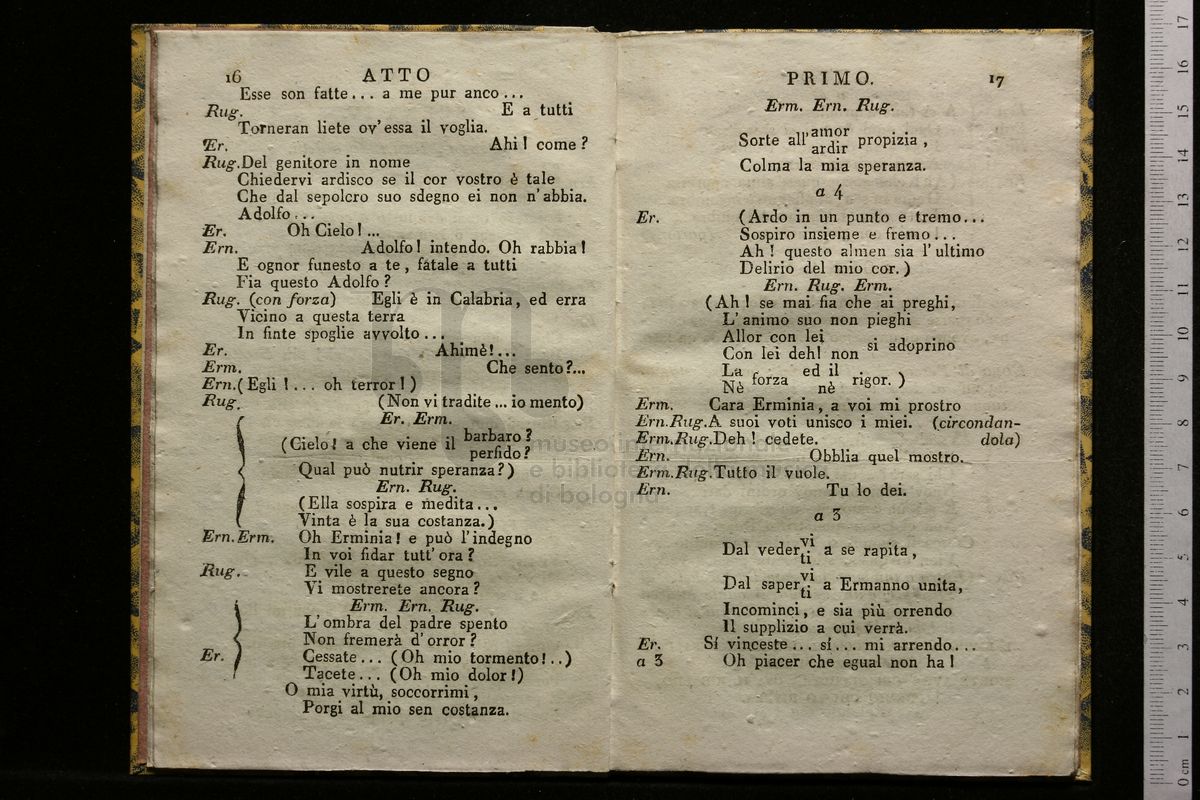 16 ATTO
Esse son fatte... a me pur anco...
Rug. E a tutti
Torneran liete ov'essa il voglia.
Er. Ahi! come?
Rug. Del genitore in nome
Chiedervi ardisco se il cor vostro è tale
Che dal sepolcro suo sdegno ei non n'abbia.
Adolfo...
Er. Oh Cielo!...
Ern. Adolfo! intendo. Oh rabbia!
E ognor funesto a te, fatale a tutti
Fia questo Adolfo?
Rug. (con forza) Egli è in Calabria, ed erra
Vicino a questa terra
In finte spoglie avvolto...
Er. Ahimè!...
Erm. Che sento?...
Ern. (Egli!... oh terror!)
Rug. (Non vi tradite... io mento)
Er. Erm.
(Cielo! a che viene il barbaro?
perfido?
Qual può nutrir speranza?)
Ern. Rug.
(Ella sospira e medita...
Vinta è la sua costanza.)
Ern. Erm. Oh Erminia! e può l'indegno
In voi fidar tutt'ora?
Rug. E vile a questo segno
Vi mostrerete ancora?
Erm. Ern. Rug.
L'ombra del padre spento
Non fremerà d'orror?
Er. Cessate... (Oh mio tormento!..)
Tacete... (Oh mio dolor!)
O mia virtù, soccorrimi,
Porgi al mio sen costanza.
PRIMO. 17
Erm. Ern. Rug.
Sorte all' amor propizia,
ardir
Colma la mia speranza.
a 4
Er. (Ardo in un punto e tremo...
Sospiro insieme e fremo...
Ah! questo almen sia l'ultimo
Delirio del mio cor.)
Ern. Rug. Erm.
(Ah! se mai fia che ai preghi,
L'animo suo non pieghi
Allor con lei
Con lei deh! non si adoprino
La forza ed il rigor.)
Nè nè
Erm. Cara Erminia, a voi mi prostro
Ern. Rug. A suoi voti unisco i miei. (circondan-
Erm. Rug. Deh! cedete. dola)
Ern. Obblia quel mostro.
Erm. Rug. Tutto il vuole.
Ern. Tu lo dei.
a 3
Dal veder vi a se rapita,
ti
Dal saper vi a Ermanno unita,
ti
Incominci, e sia più orrendo
Il supplizio a cui verrà.
Er. Sí vinceste... sí... mi arrendo...
a 3 Oh piacer che egual non ha!
museo internazionale
e biblioteca della musica
di bologna
0 cm 1 2 3 4 5 6 7 8 9 10 11 12 13 14 15 16 17